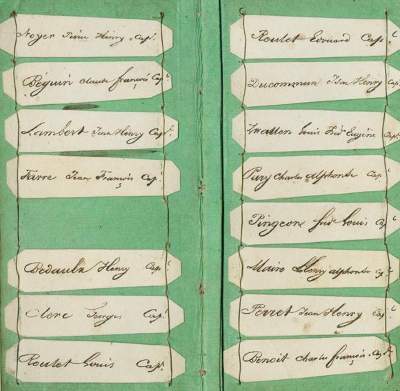 Noyer Pierre Henry Capl
Béguin claude françois Capl
Lambert Jean Henry Capl
Favre Jean François Capl
Bedaulx Henry Capl
Clerc Georges Capl
Roulet Louis Capl
Roulet Edouard Capl
Ducommun Jean Henry Capl
Louis Fréd Eugène Capl
Pury Charles Alphonse Capl
Pingeon fréd Louis Capl
Maire Henry alphonse Capl
Perret Jean Henry Capl
Benoit Charles françois Capl